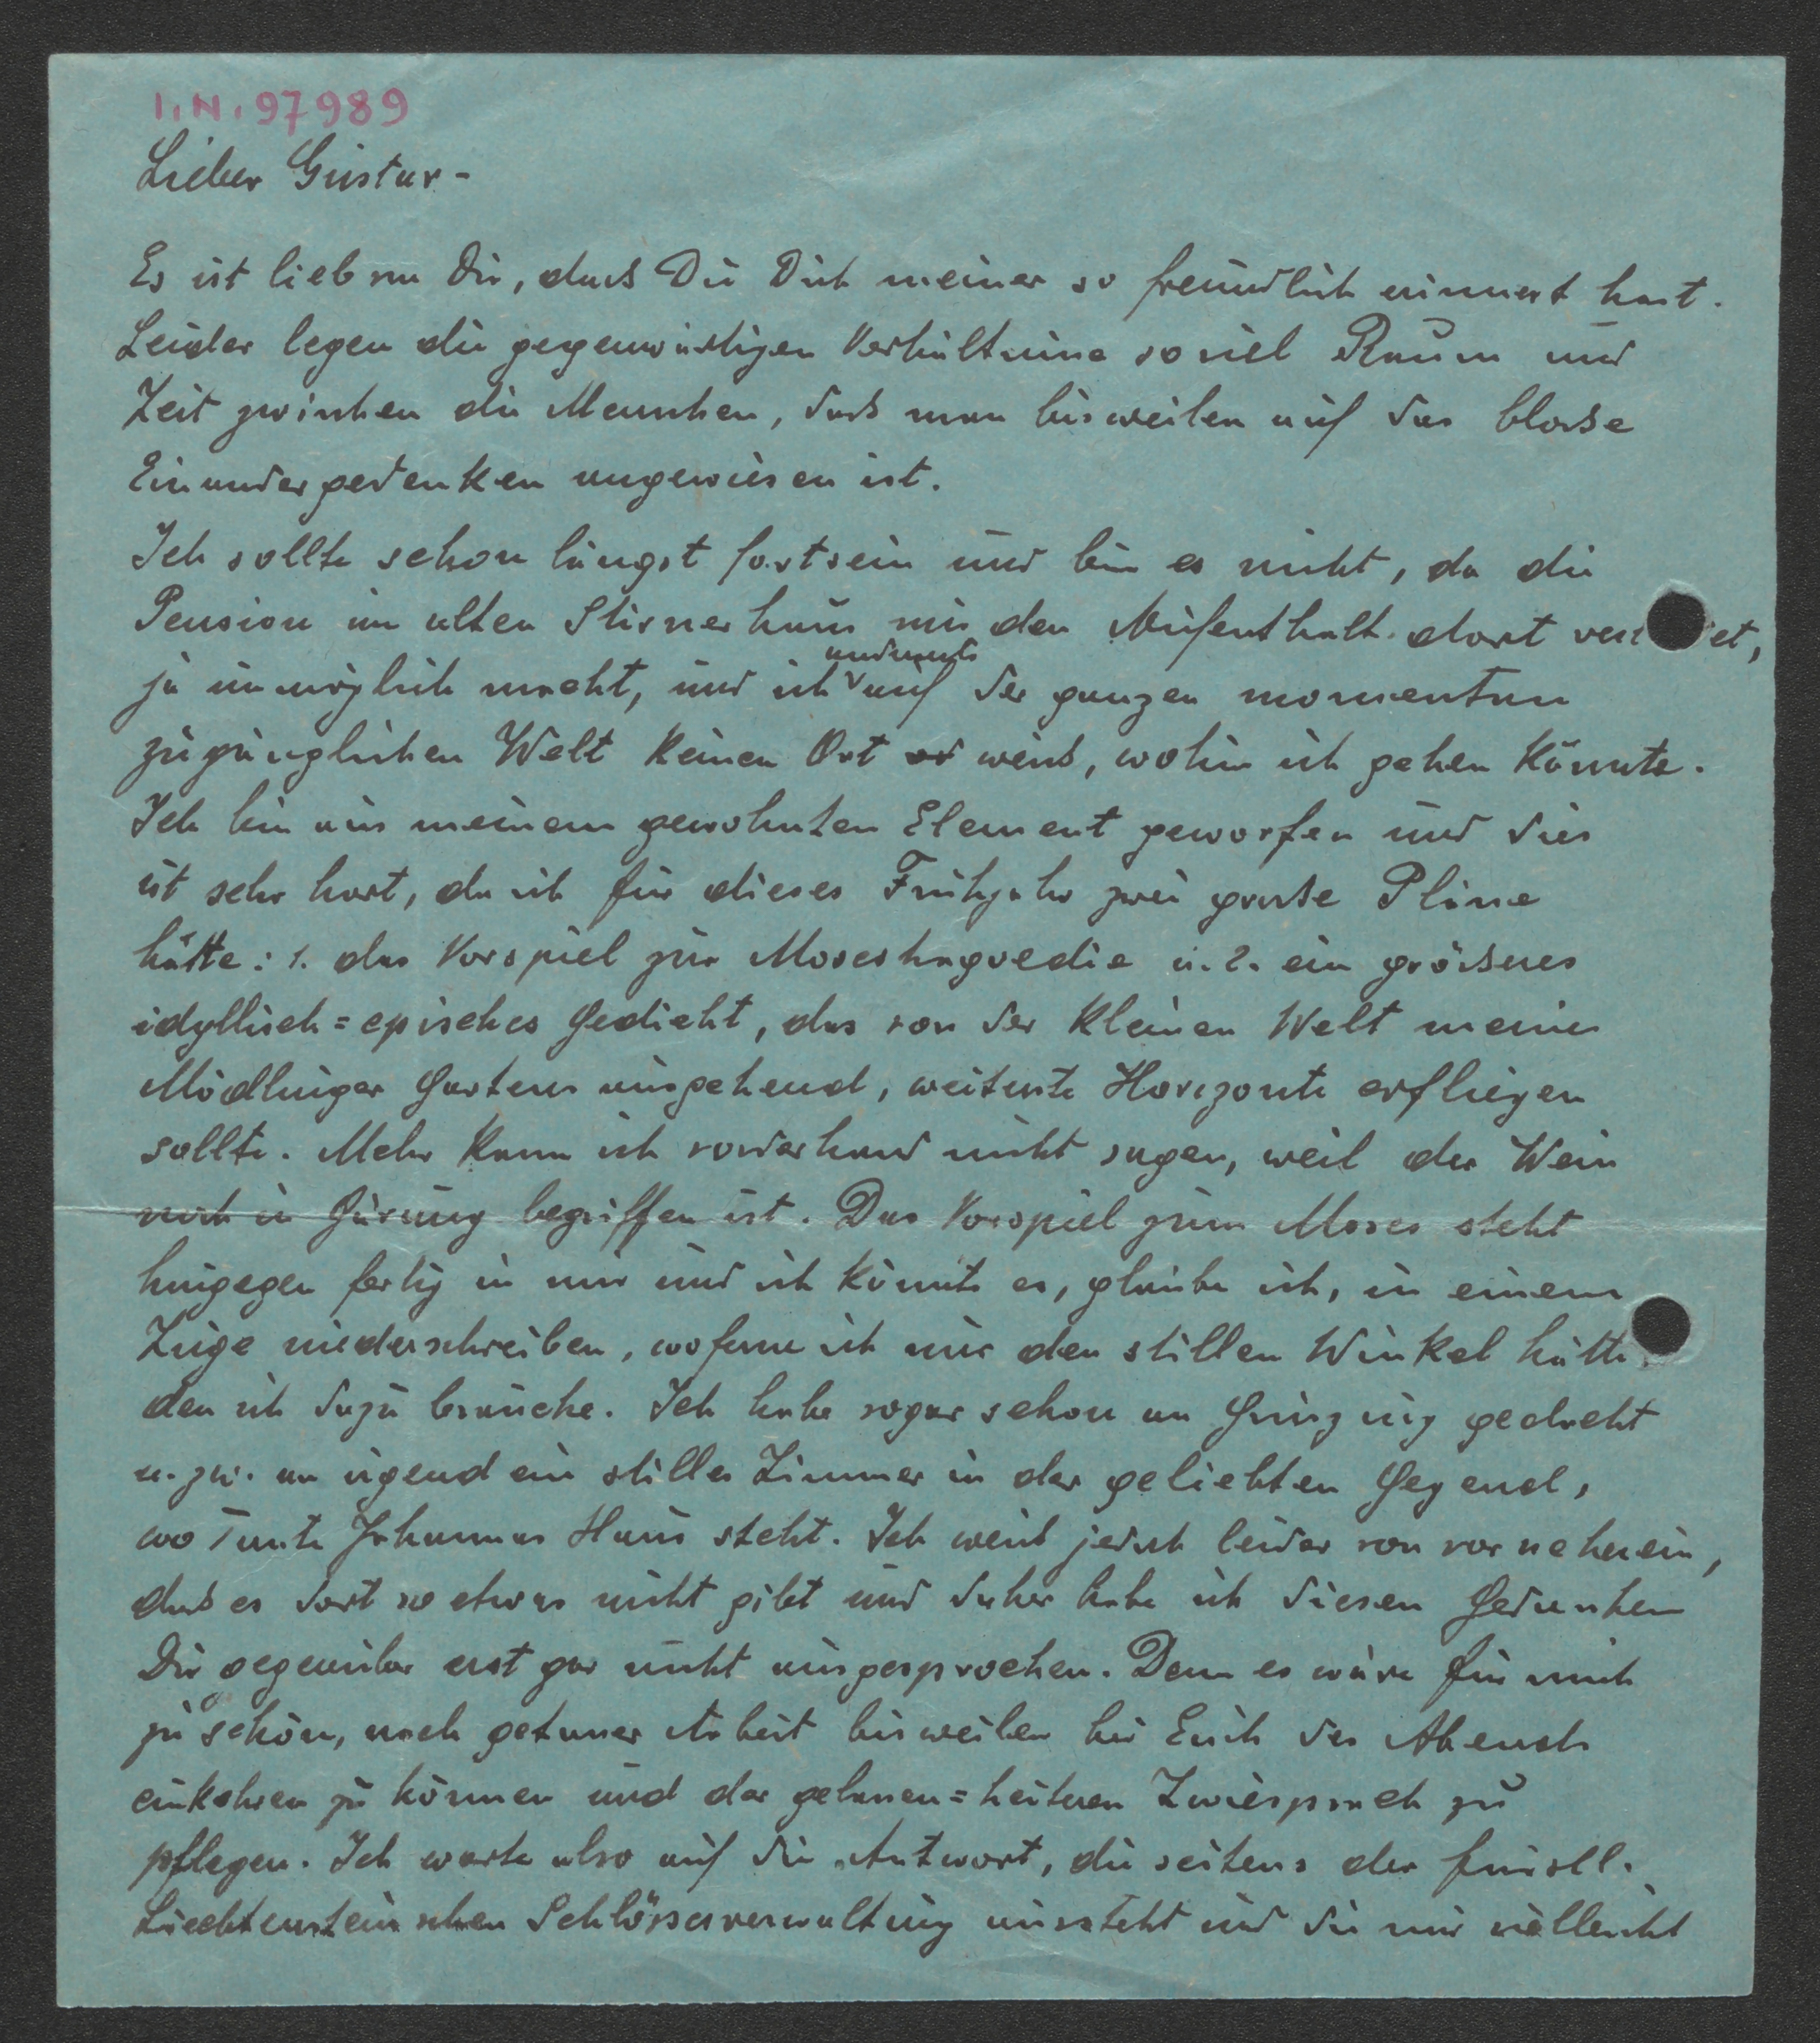 I.N. 97989
Lieber Gustav -
Es ist lieb von Dir, dass Du Dich meiner so freundlich erinnert hast.
Leider legen die gegenwärtigen Verhältnisse soviel Raum und
Zeit zwischen die Menschen, dass man bisweilen auf das blosse
Einandergedenken angewiesen ist.
Ich sollte schon längst fortsein und bin es nicht, da die
Pension im alten Stirnerhaus mir den Aufenthalt dort et,
andrerseits
ja unmöglich macht, und ich auf der ganzen momentan
zugänglichen Welt keinen Ort weiss, wohin ich gehen könnte.
Ich bin aus meinem gewohnten Element geworfen und dies
ist sehr hart, da ich für dieses Frühjahr zwei grosse Pläne
hätte: 1. das Vorspiel zur Mosestragoedie u. 2. ein grösseres
idyllisch=episches Gedicht, das von der kleinen Welt meines
Mödlinger Gartens ausgehend, weiteste Horizonte erfliegen
sollte. Mehr kann ich vorderhand nicht sagen, weil der Wein
noch in Gärung begriffen ist. Das Vorspiel zum Moses steht
hingegen fertig in mir und ich könnte es, glaube ich, in einem
Zuge niederschreiben, woferne ich nur den stillen Winkel hätte,
den ich dazu brauche. Ich habe sogar schon an Grinzing gedacht
u. zw. an irgend ein stilles Zimmer in der geliebten Gegend,
wo Tante Johannas Haus steht. Ich weiss jedoch leider von vorneherein,
dass es dort so etwas nicht gibt und daher habe ich diesen Gedanken
Dir gegenüber erst gar nicht ausgesprochen. Denn es wäre für mich
zu schön, nach getaner Arbeit bisweilen bei Euch des Abends
einkehren zu können und der gelassen=heiteren Zwiesprach zu
pflegen. Ich warte also auf die Antwort, die seitens der fürstl.
Liechtensteinschen Schlösserverwaltung aussteht und die mir vielleicht